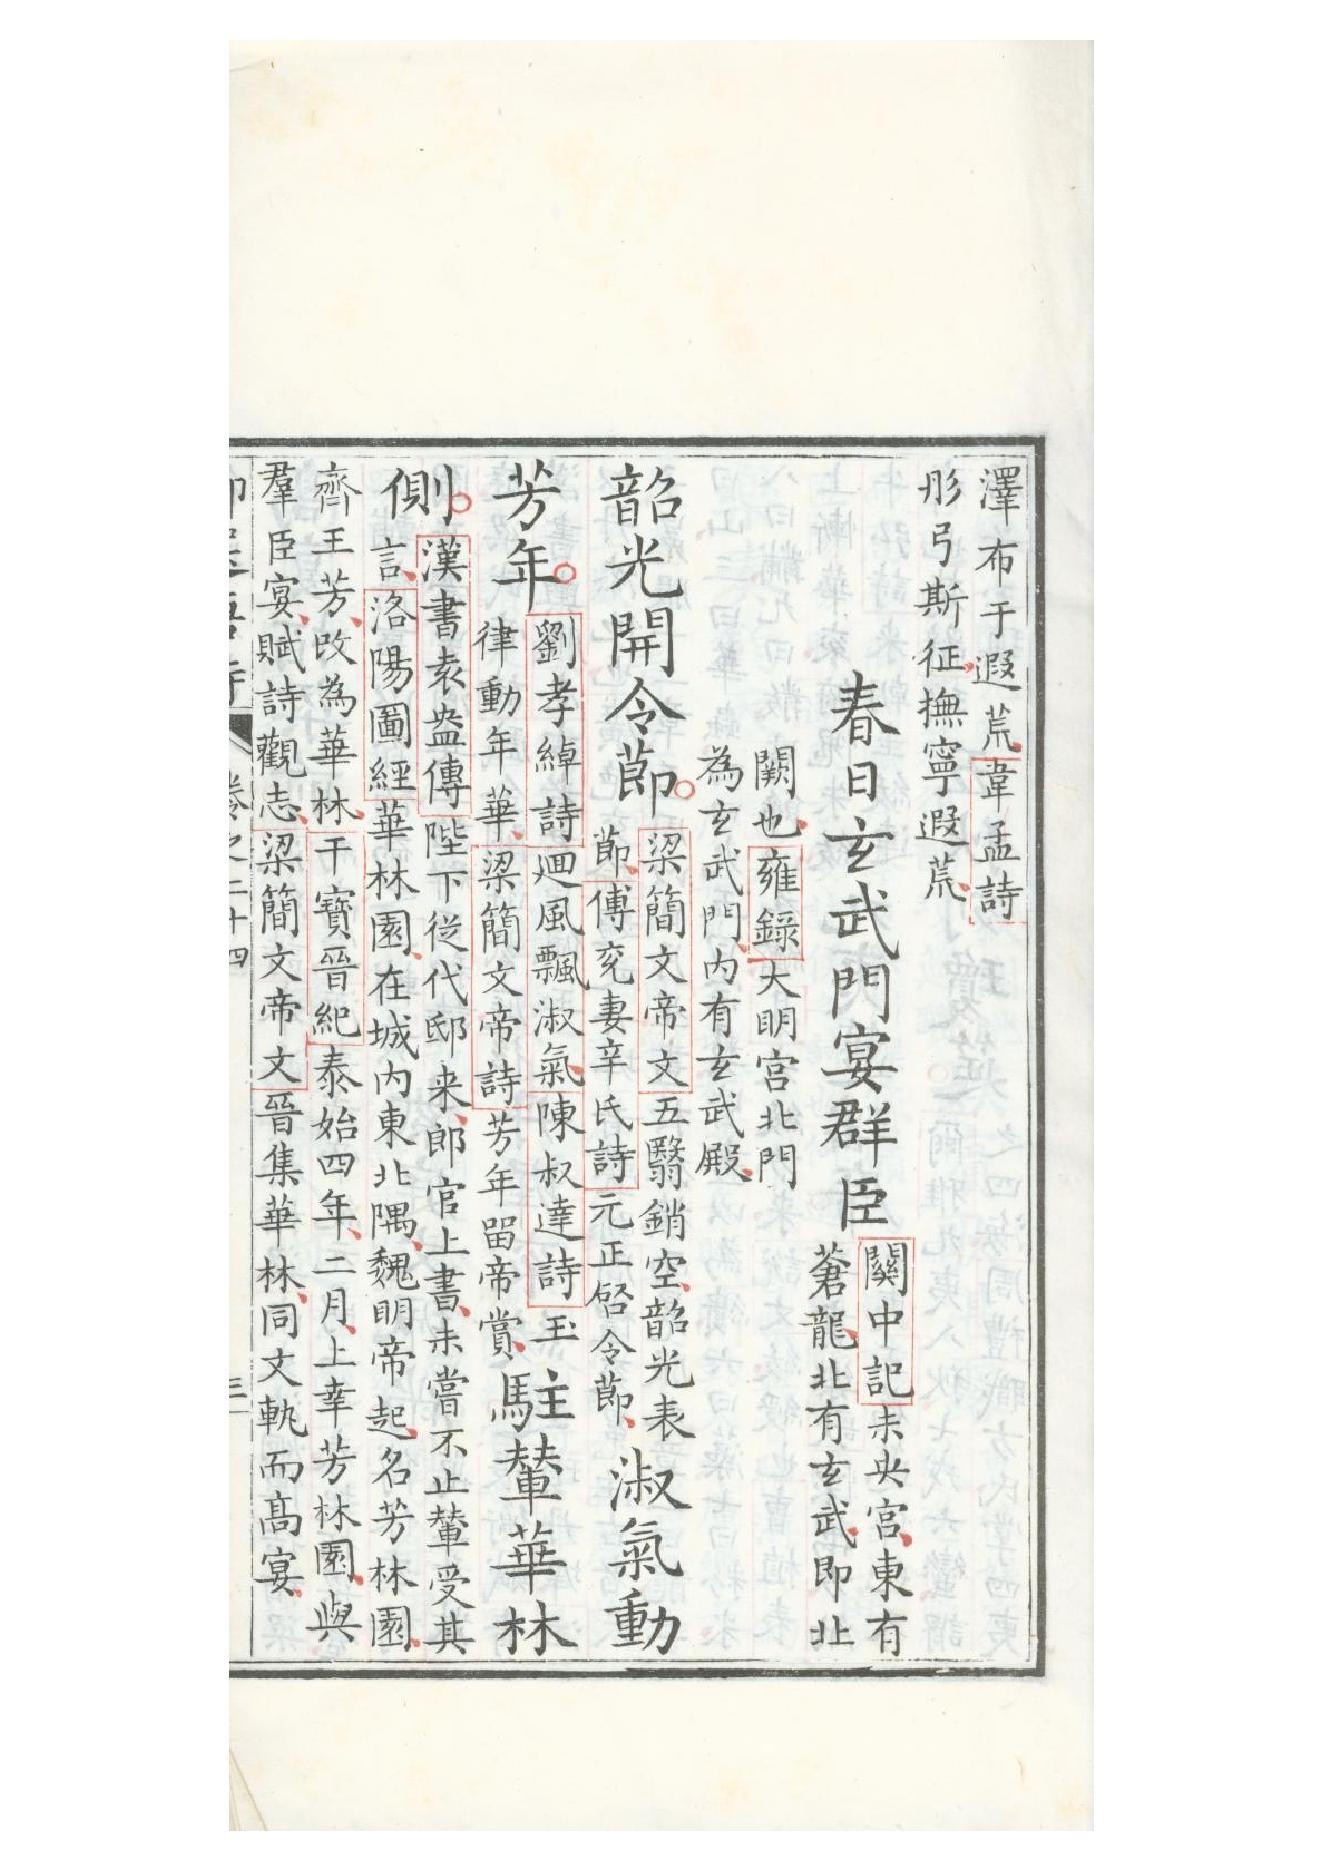 澤布于遐荒韋孟詩
彤弓斯征撫寧遐荒
春日玄武門宴群臣
關中記未央宫東有
蒼龍北有玄武即北
闕也雍錄大明宫北門
為玄武門内有玄武殿
韶光開令節
梁簡文帝文五翳銷空韶光表
節傅充妻辛氏詩元正啓令節
淑氣動
芳年
劉孝綽詩廻風飄淑氣陳叔達詩玉
律動年華梁簡文帝詩芳年留帝賞
駐輦華林
側
漢書袁盎傳陛下從代邸来郎官上書未嘗不止輦受其
言洛陽圖經華林園在城内東北隅魏明帝起名芳林園
齊王芳改為華林干寶晉紀泰始四年二月上幸芳林園與
羣臣宴賦詩觀志梁簡文帝文晉集華林同文軌而高宴
卷之二十四
三